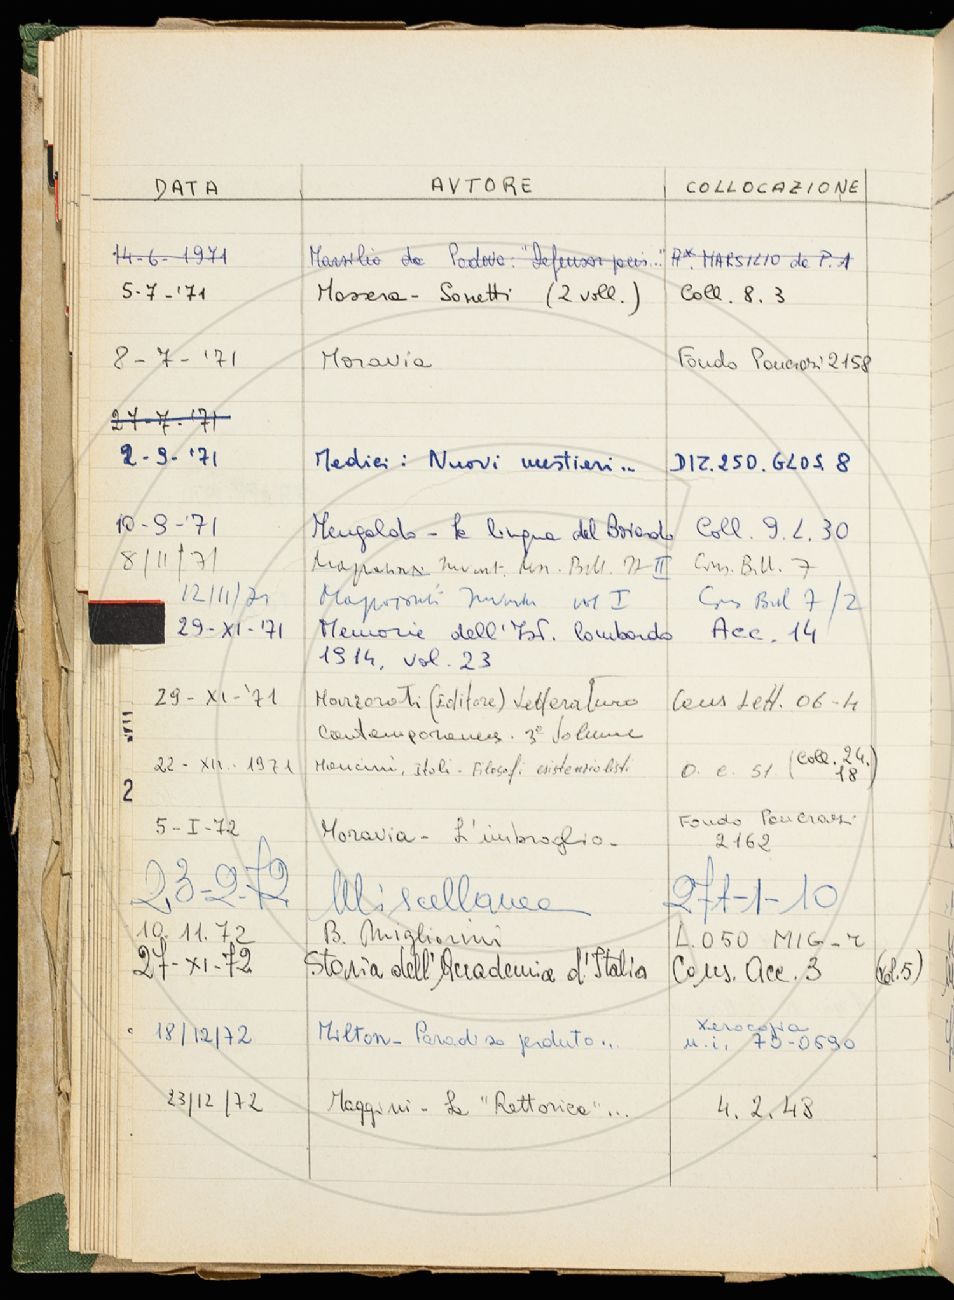 DATA AVTORE COLLOCAZIONE
14-6-1971 Marsilio da Padova: "Defensor pacis..." MARSILIO da P. 1
5-7-'71 Massera - Sonetti (2 voll.) Coll. 8.3
8-7-'71 Moravia Fondo Pancrazi 2158
27-7-'71
2-9-'71 Medici: Nuovi mestieri... DIZ.250.GLOS 8
10-9-'71 Mengaldo - La lingua del Boiardo Coll. 9.L.30
8/11/71 Invent. Bibl. II Cons. Bibl. 7
12/11/71 vol I Cons Bibl 7/2
29-XI-'71 Memorie dell'Ist. lombardo Acc. 14
1914, vol. 23
29-XI-'71 Marzorati (Editore) Letteratura Cons Lett. 06-4
contemporanea. 3° Volume
22-XII-1971 Mancini, Itali - Filosofi esistenzialisti O. c. 51 (Coll. 24.
18)
2
5-I-72 Moravia - L'imbroglio - Fondo Pancrazi
2162
23-2-72 Miscellanea 271-1-10
10.11.72 B. Migliorini L.050 MIG-r
27-XI-72 Storia dell'Accademia d'Italia Cons. Acc. 3 (vol.5)
18/12/72 Milton - Paradiso perduto... xerocopia
n.i. 70-0690
23/12/72 Maggini - La "Rettorica"... 4.2.48